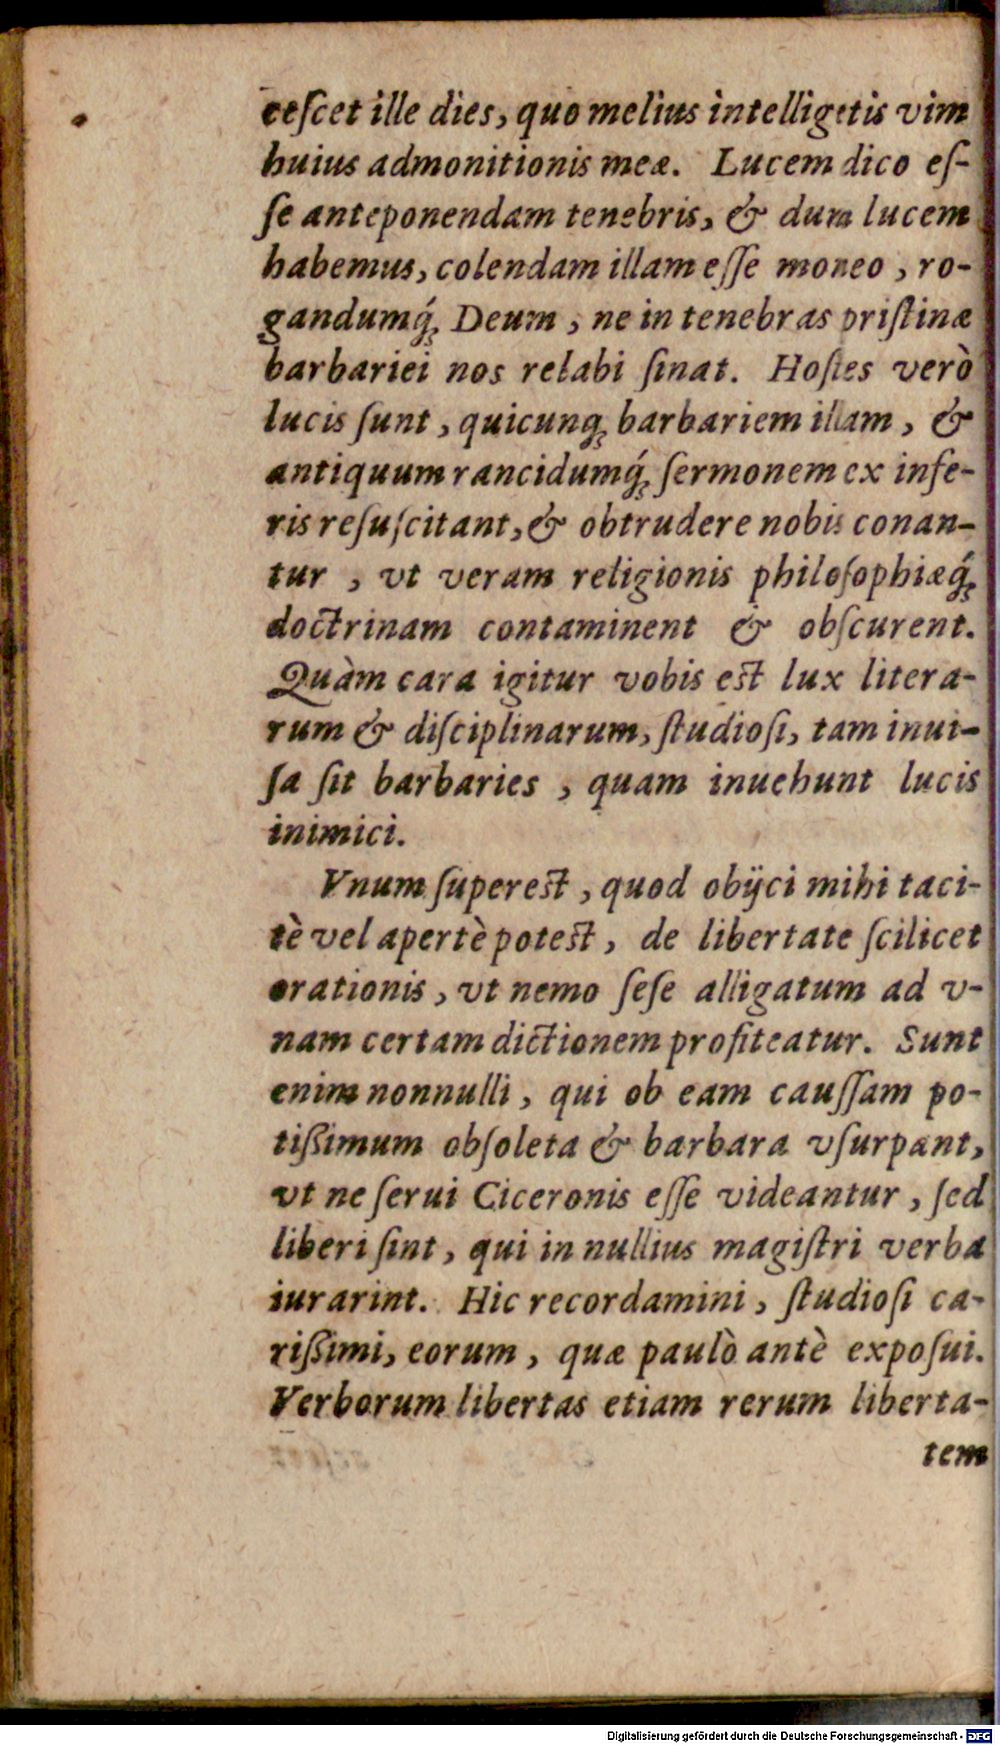 cescet ille dies, quo melius intelligetis vim
huius admonitionis meæ. Lucem dico eſ-
ſe anteponendam tenebris, & dum lucem
habemus, colendam illam eſſe moneo, ro-
gandumq́; Deum, ne in tenebras priſtinæ
barbariei nos relabi ſinat. Hoſtes verò
lucis ſunt, quicunq; barbariem illam, &
antiquum rancidumq́; ſermonem ex infe-
ris reſuſcitant, & obtrudere nobis conan-
tur, vt veram religionis philoſophiæq́;
doctrinam contaminent & obſcurent.
Quàm cara igitur vobis est lux litera-
rum & diſciplinarum, ſtudioſi, tam inui-
ſa ſit barbaries, quam inuehunt lucis
inimici.
Vnum ſuperest, quod obijci mihi taci-
tè vel apertè potest, de libertate ſcilicet
orationis, vt nemo ſeſe alligatum ad v-
nam certam dictionem profiteatur. Sunt
enim nonnulli, qui ob eam cauſſam po-
tiſsimum obſoleta & barbara vſurpant,
vt ne ſerui Ciceronis eſſe videantur, ſed
liberi ſint, qui in nullius magiſtri verba
iurarint. Hic recordamini, ſtudioſi ca-
riſsimi, eorum, quæ paulò antè expoſui.
Verborum libertas etiam rerum liberta-
tem
Digitalisierung gefördert durch die Deutsche Forschungsgemeinschaft - DFG